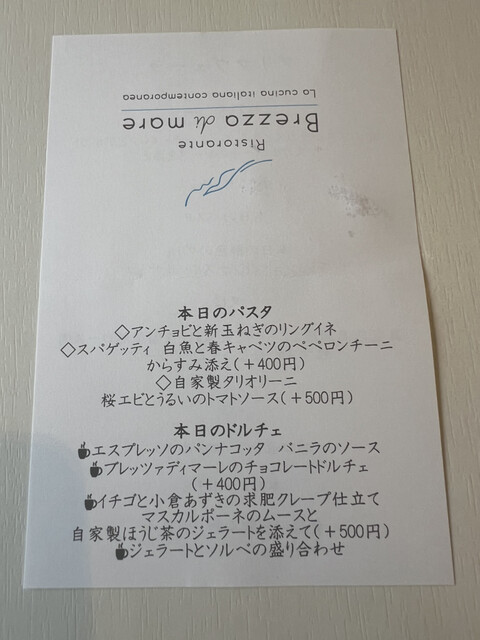 Ristorante
Brezza di mare
La cucina italiana contemporanea
本日のパスタ
◇アンチョビと新玉ねぎのリングイネ
◇スパゲッティ 白魚と春キャベツのペペロンチーニ
からすみ添え(+400円)
◇自家製タリオリーニ
桜エビとうるいのトマトソース(+500円)
本日のドルチェ
☕エスプレッソのパンナコッタ バニラのソース
☕ブレッツァディマーレのチョコレートドルチェ
(+400円)
☕イチゴと小倉あずきの求肥クレープ仕立て
マスカルポーネのムースと
自家製ほうじ茶のジェラートを添えて(+500円)
☕ジェラートとソルベの盛り合わせ